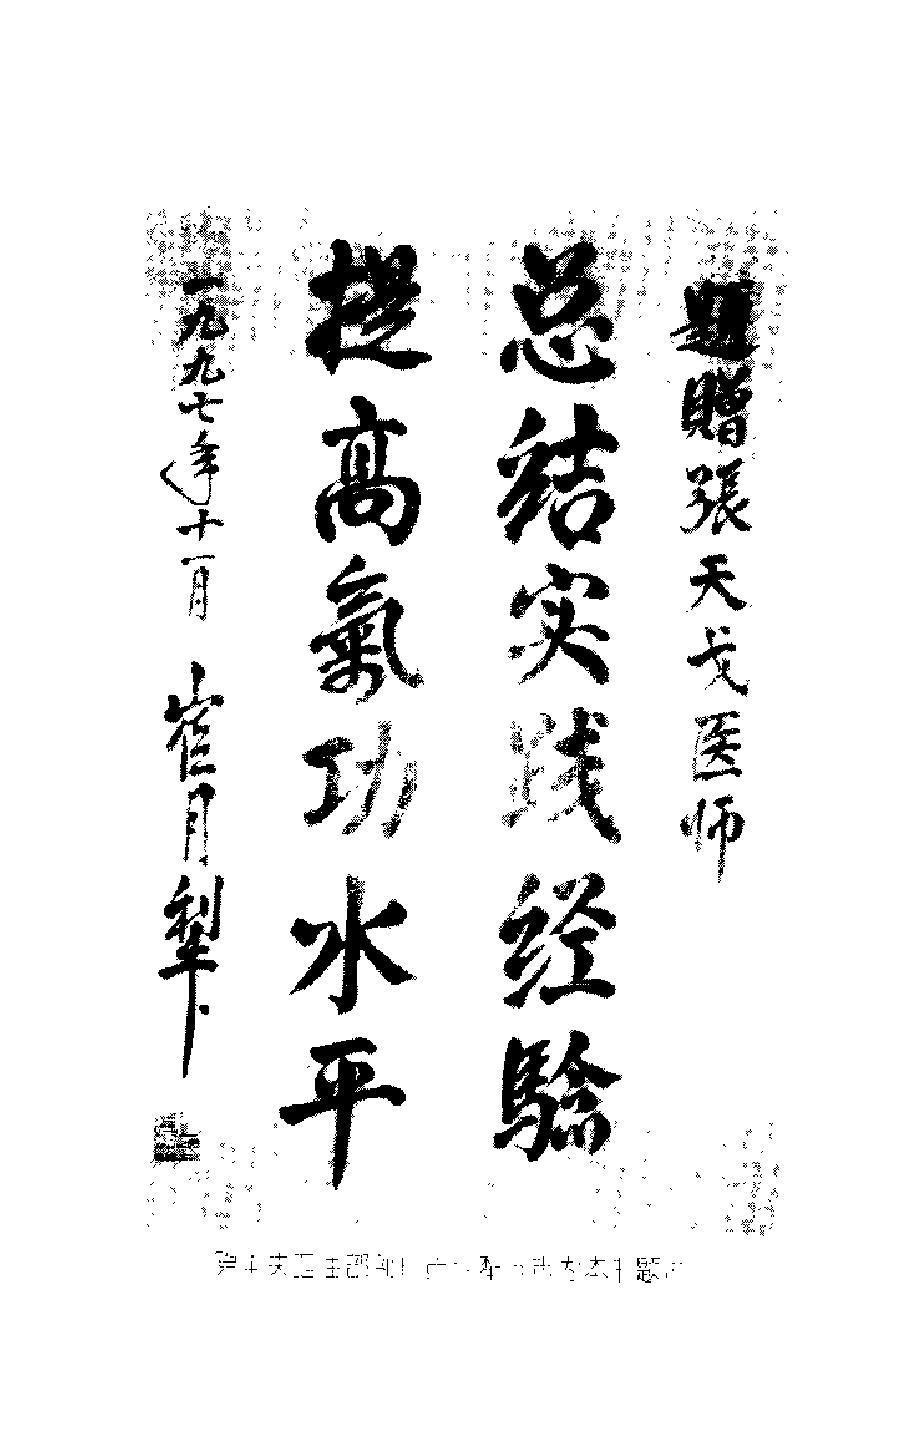 題贈張天戈医师
总结实践经驗
提高氣功水平
一九九七年十一月 崔月犁